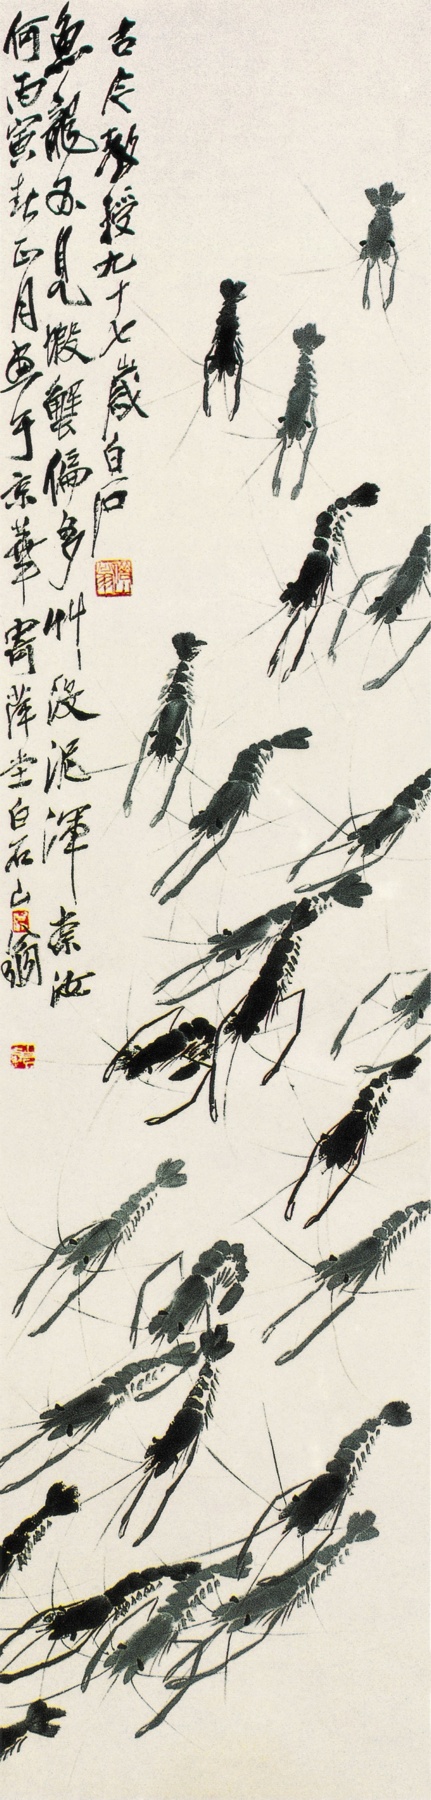 古今教授九十七歲白石
魚龍不見蝦蟹偏多艸沒泥渾柰汝
何丙寅春正月畫于京華寄萍堂白石山翁